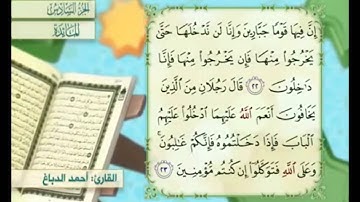 الجزء السادس
المائدة
إِنَّ فِيهَا قَوْمًا جَبَّارِينَ وَإِنَّا لَن نَّدْخُلَهَا حَتَّىٰ
يَخْرُجُوا۟ مِنْهَا فَإِن يَخْرُجُوا۟ مِنْهَا فَإِنَّا
دَٰخِلُونَ ٢٢ قَالَ رَجُلَانِ مِنَ ٱلَّذِينَ
يَخَافُونَ أَنْعَمَ ٱللَّهُ عَلَيْهِمَا ٱدْخُلُوا۟ عَلَيْهِمُ
ٱلْبَابَ فَإِذَا دَخَلْتُمُوهُ فَإِنَّكُمْ غَٰلِبُونَ ۚ
وَعَلَى ٱللَّهِ فَتَوَكَّلُوٓا۟ إِن كُنتُم مُّؤْمِنِينَ ٢٣
القارئ: أحمد الدباغ